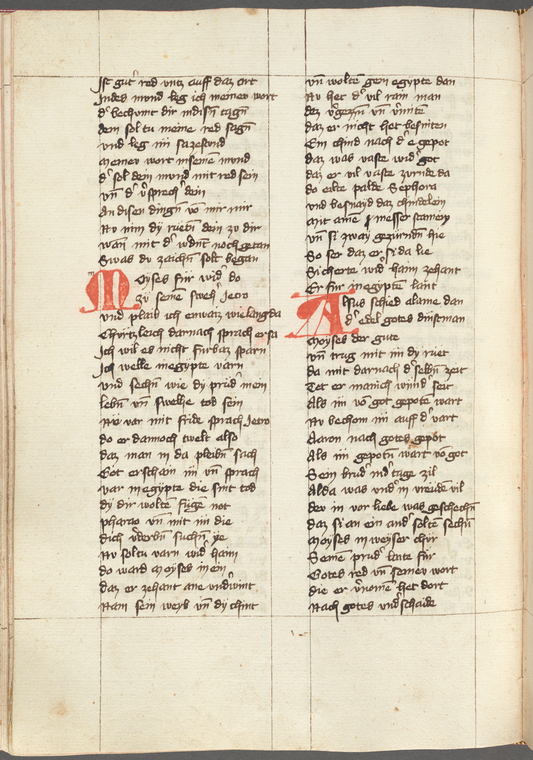 Ist gut red vntz auff daz ort
In des mund leg ich meinew wort
d' bechomt dir in disn tagn̄
dem sol tu meine red sagn̄
vnd leg im sa zestund
Meinew wort in seine mund
d' sol dein mund mit red sein
vn̄ d' v̇sprech' dein
An disen dingn̄ vō mir
Nv nim dy ruetn̄ dein zv dir
wan̄ mit d' wdnt noch getan
Swas dv zaichn̄ solt began
Moyses fur wid' do
zv seine sweh' Jetro
vnd plaib ich enwaiz wie langda
Chürtzleich darnach sprach er sa
Ich wil es nicht furbaz sparn̄
Ich welle in egypte varn
vnd sechn̄ wie dy prud' mein
lebn̄ vn̄ swelhe tod sein
Nv var mit fride sprach Jetro
do er dannoch twelt also
daz man in da pleibn̄ sach
Got erschain im vn̄ sprach
var in egypte die sint tod
dy dir wolte fugē not
pharao vn̄ mit im die
dich v̇derbn̄ suchn̄ ye
Nv soltu varn wid' haim
do ward Moyses in ein
daz er zehant ane vnd'wint
Nam sein weyb vn̄ dy chint
vn̄ wolte gein egypte dan
Nv het d' vil rain man
dez v̇gezzn̄ vn̄ v̇mite
daz er nicht het besnitten
Ein chind nach d' e gepot
daz was vaste wid' got
daz er vil vaste zurnde da
do eilte palde Sephora
vnd besnayd daz chindelein
Mit ainē messer stainein
vn̄ si zway gezurndn̄ hie
So ser daz er si da lie
Sicherte wid' haim zehant
Er fur in egypte lant
Alsus schied alaine dan
d' edel gotes dinstman
Moyses der gute
vn̄ trug mit im dy ruet
da mit darnach d' selbn̄ zeit
Tet er manich wund' seit
Als im vō got gepotē wart
Nv bechom im auff d' vart
Aaron nach gotes gepot
Als im gepotn̄ wart vō got
Sein brud' in d' tage zil
Alda was vnd' in vreude vil
dew in vor liebe was geschechn̄
daz si an ein and' solte sechn̄
Moyses in weyser chür
Seinē prud' laite für
Gotes red vn̄ seinew wort
die er v̇nomē het dort
Nach gotes vnd'schaide